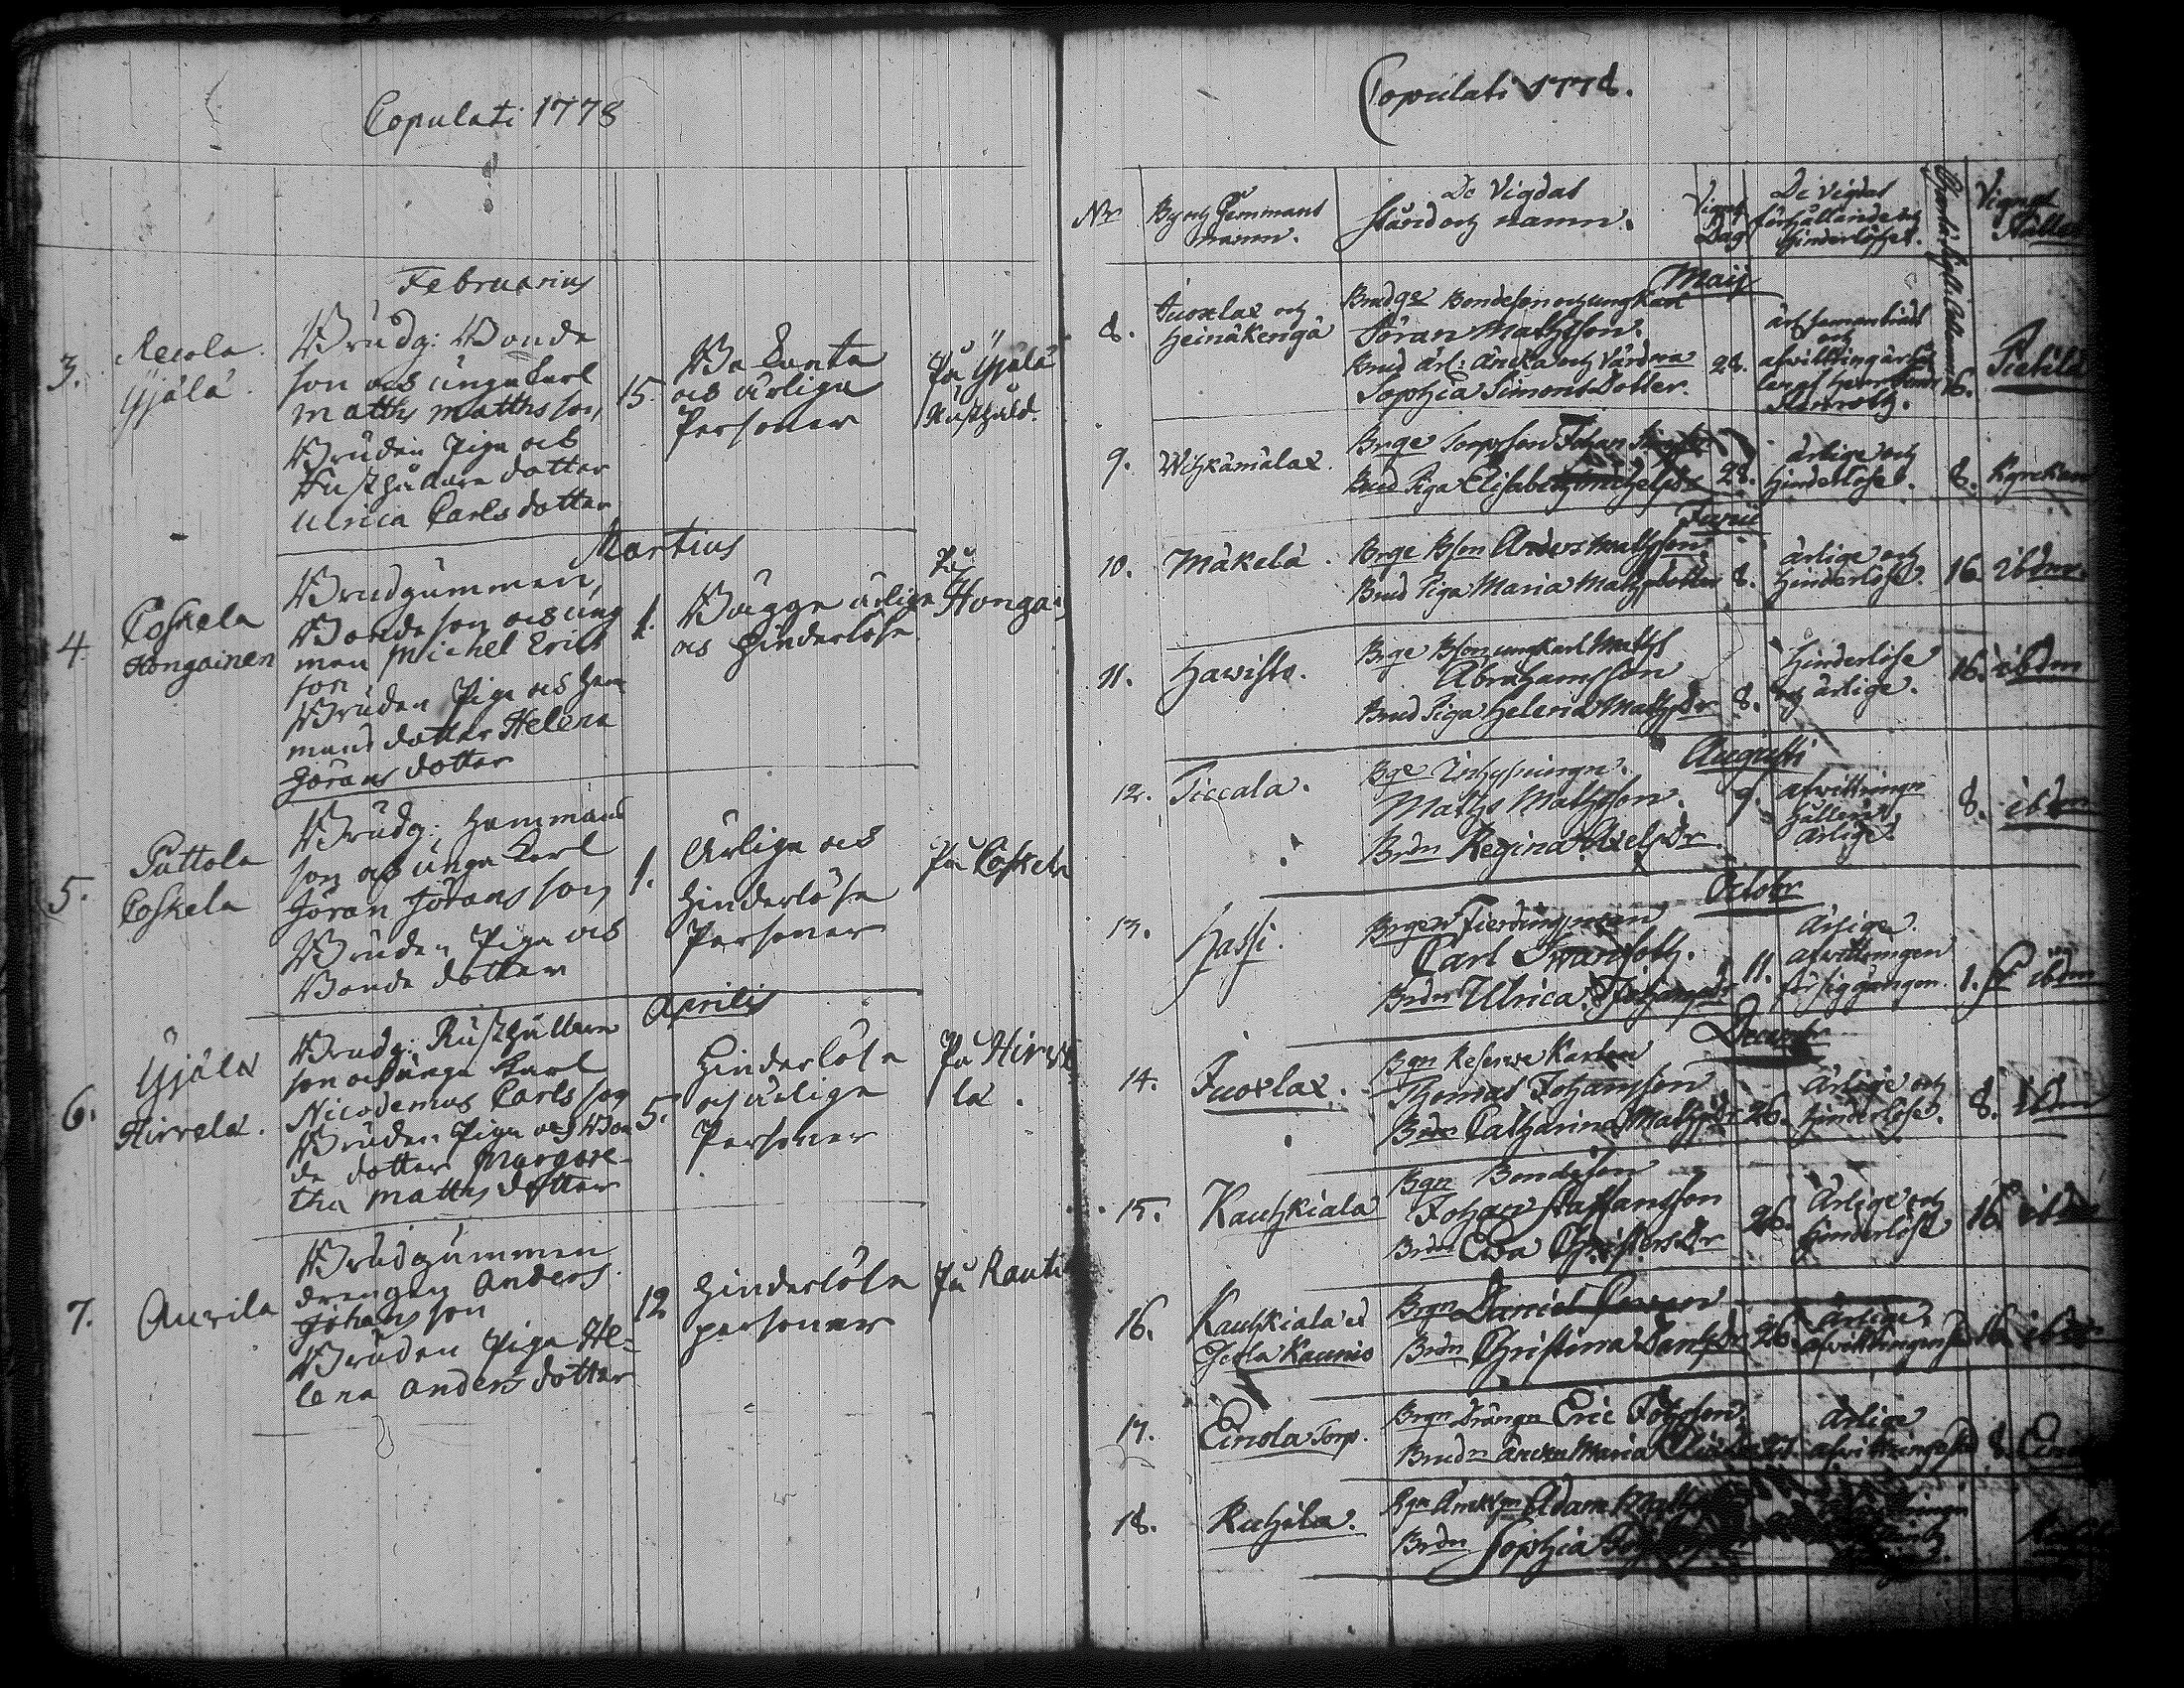 Copulati 1778
Februarius
3.
Recola
Yjälä
Brudg: Bonde
son och unga Karl
Matths Matthsson
Bruden Piga och
Rusthållare dotter
Ulrica Carlsdotter
15.
Be Kanta
och ärliga
Personer
På Yjälä
Rusthåld.
Martius
4.
Coskela
Hongainen
Brudgummen
Bonde son och ung
man Michel Erics
son
Bruden Piga och Hem
mans dotter Helena
Jörans dotter
1.
Bägge ärliga
och Hinderlösa
På
Hongai
5.
Puttola
Coskela
Brudg: Hemmans
son och unga Karl
Jöran Jörans son
Bruden Piga och
Bonde dotter
1.
Ärliga och
Hinderlösa
Personer
På Coskela
Aprilis
6.
Yjälä
Hirvelä.
Brudg: Rusthållare
son och unga Karl
Nicodemus Carls son
Bruden Piga och Bon
de dotter Margare-
tha Matths dotter
5.
Hinderlösa
och ärliga
Personer
På Hirve
lä.
7.
Anvila
Brudgummen
drengen Anders
Johans son
Bruden Piga He-
lena Anders dotter
12
Hinderlösa
personer
På Rauti
Copulati 1778.
Nr
By och Hemmans
namn.
De Vigdas
stånd och namn.
Vigngs
Dag
De Vigdas
förhållande och
Hinderlöshet.
Vigngs
Stället
Maij
8.
Juoxlax och
Heinäkengä
Brudge Bondeson och ungkarl
Jöran Mathsson.
Brud ärl: Änckan och Värdna
Sophia Simonsdotter.
28.
och
afvittring är
16.
Pietilä
9.
Wihkamälax.
Brge Torpson Johan
Brud Piga Elisabeth Michelsdr
28.
ärlige och
Hinderlöse.
8.
Kyrckan
Junii
10.
Mäkelä.
Brge Bson Anders Mathsson.
Brud Piga Maria Mathsdotter
8.
ärlige och
Hinderlöse.
16.
ibdm.
11.
Hawisto.
Brge Bson ungkarl Maths
Abrahamsson
Brud Piga Helena Mathsdr
8.
Hinderlöse
och ärlige.
16.
ibdm
Augusti
12.
Piccala.
Bge Inhysningn.
Maths Mathsson.
Brdn Regina Axelsdr
9.
afvittringn
hållen
ärlige.
8.
ibdm
Octobr
13.
Hassi.
Brgen Fierdingsman
Carl
Brdn Ulrica Johansdr
11.
Ärlige.
afvittringen
för sig gången.
1.
ibdm
Decembr
14.
Juoxlax.
Bgn Reserve Karlen
Thomas Johansson
Brdn Catharina Mathsdr
26.
Ärlige och
Hinderlöse.
8.
ibdm
15.
Kauhkiala
Bgn Bondeson
Johan Staffansson
Brdn Ewa Christersdr
26.
Ärlige och
Hinderlöse
16
ibdm
16.
Kauhkiala
Kaunis
Brgn Daniel
Brdn Christina
26.
Ärlige.
afvittringen
16.
ibdm
17.
Einola Torp.
Brgn Drängn Eric Johsson
Brudn Änckan Maria
27.
Ärlige
8.
Einola
18.
Kuhila.
Bgn Adam
Brdn Sophia